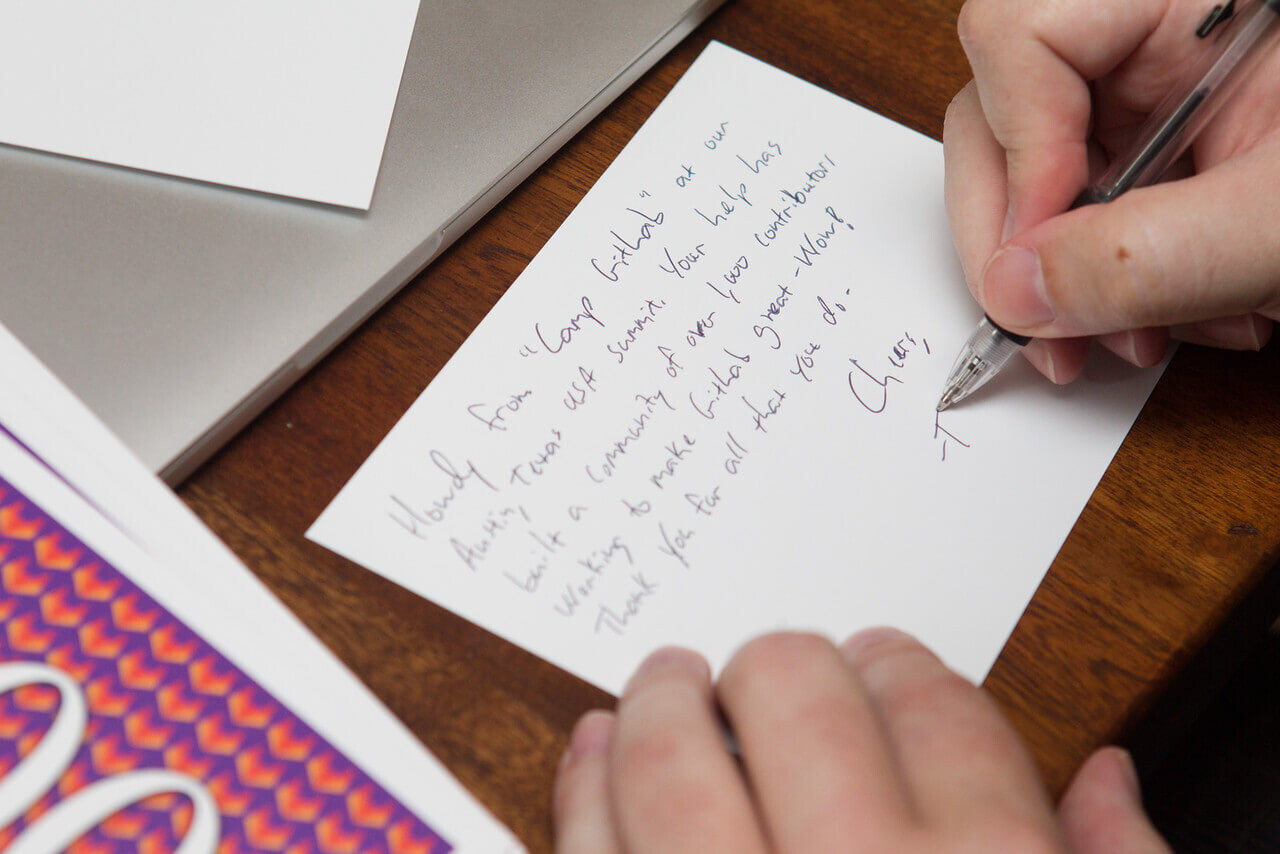 Howdy from "Camp Gitlab" at our
Austin, Texas USA summit. Your help has
built a community of over 1,000 contributors
working to make Gitlab great - Wow!
Thank you for all that you do.
Cheers,
-T